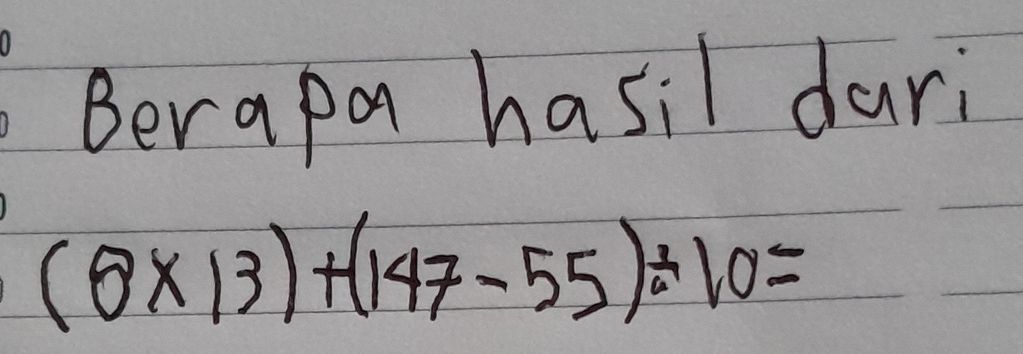 Berapa hasil dari
(8 × 13) + (147 - 55) ÷ 10 =